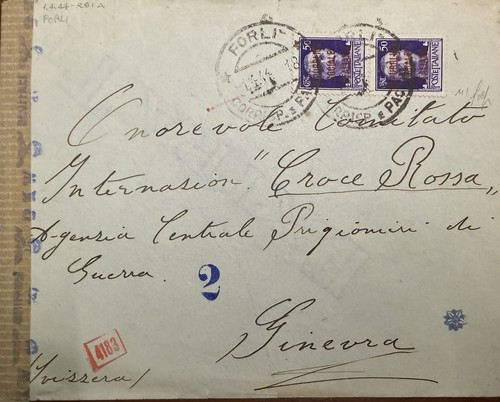 FORLI
FORLI
CORRISP. E PAC
CORRISP. E PAC
50
POSTE ITALIANE
50
POSTE ITALIANE
Onorevole Comitato
Internazion. "Croce Rossa"
Agenzia Centrale Prigionieri di
Guerra.
2
Ginevra
4183
/Svizzera/